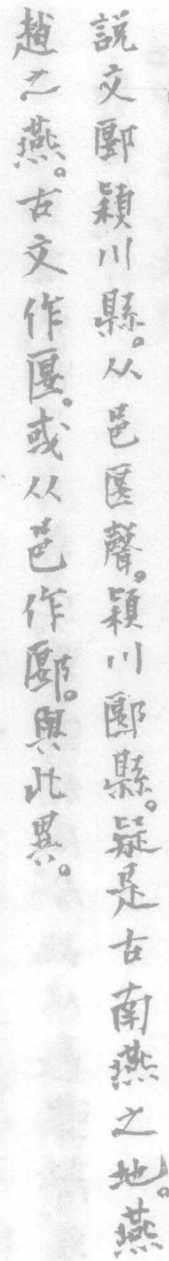 說文郾潁川縣。从邑匽聲。潁川郾縣。疑是古南燕之地。燕
趙之燕。古文作匽。或从邑作郾。與此異。